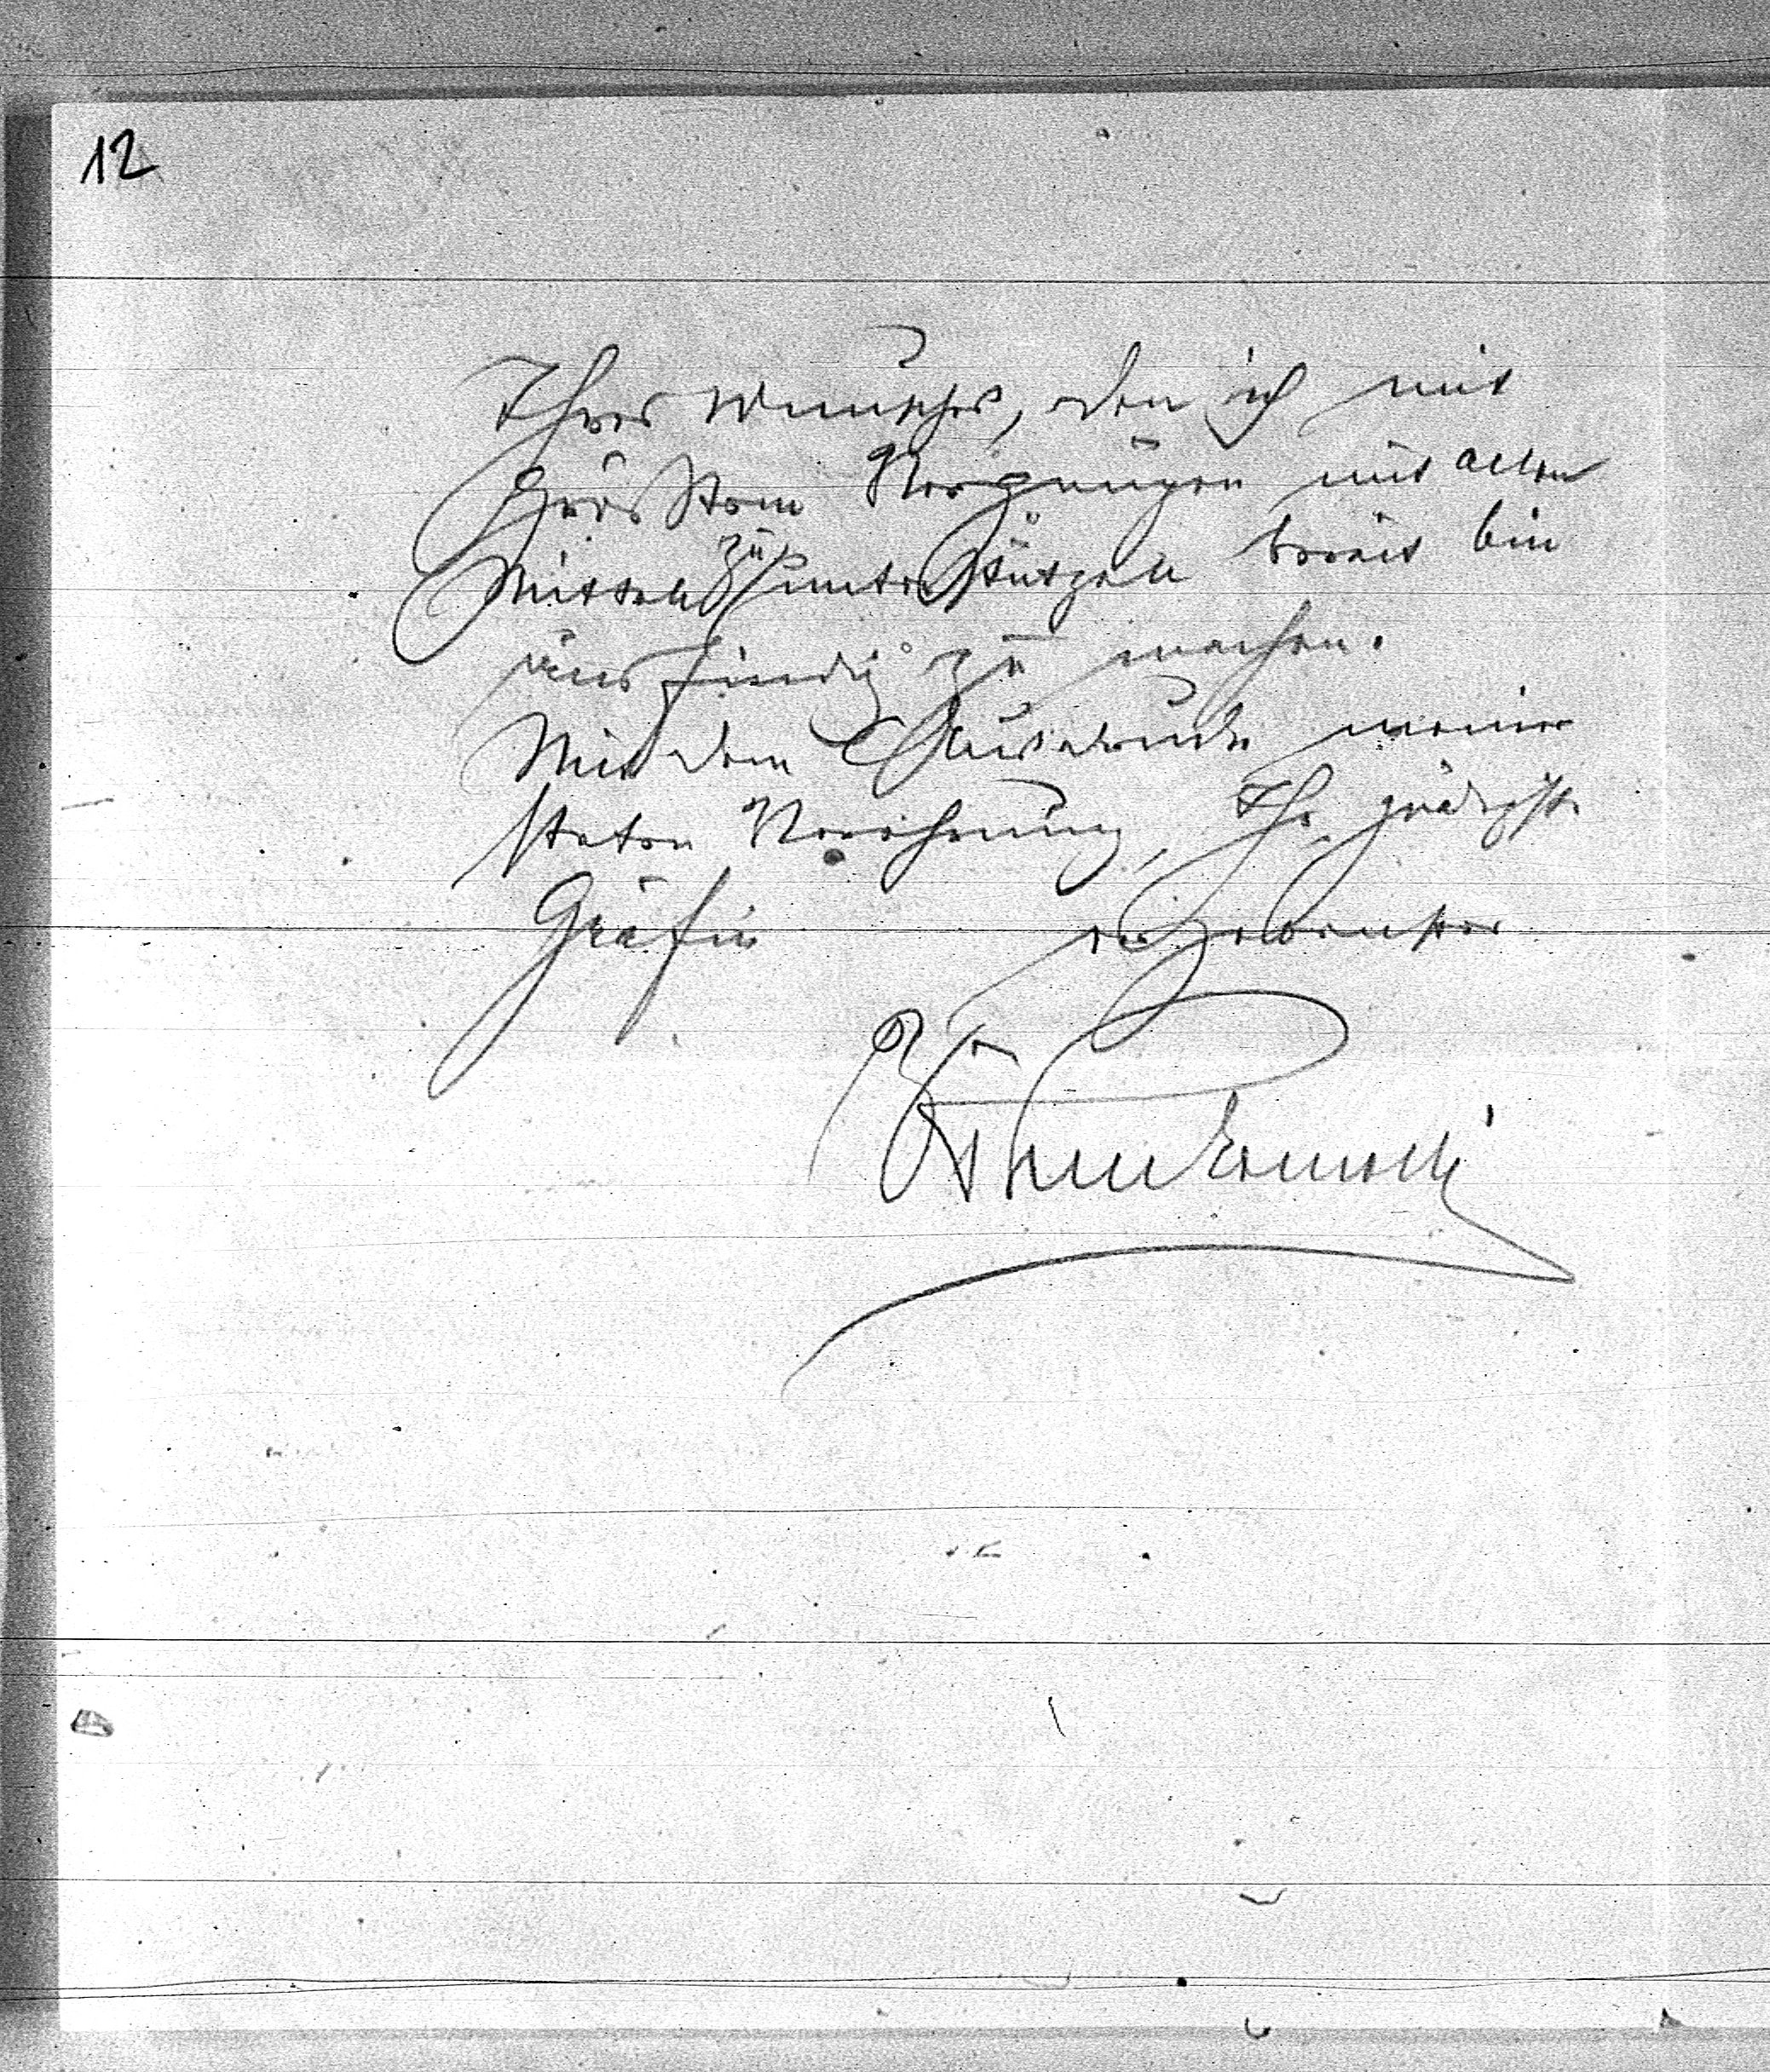 12
Ihres Wunsches, den ich mit
größtem Vergnügen mit allen
Mitteln zu unterstützen bereit bin
ausfindig zu machen.
Mit dem Ausdrucke meiner
steten Verehrung, Ihr gnädigste
Gräfin ergebenster